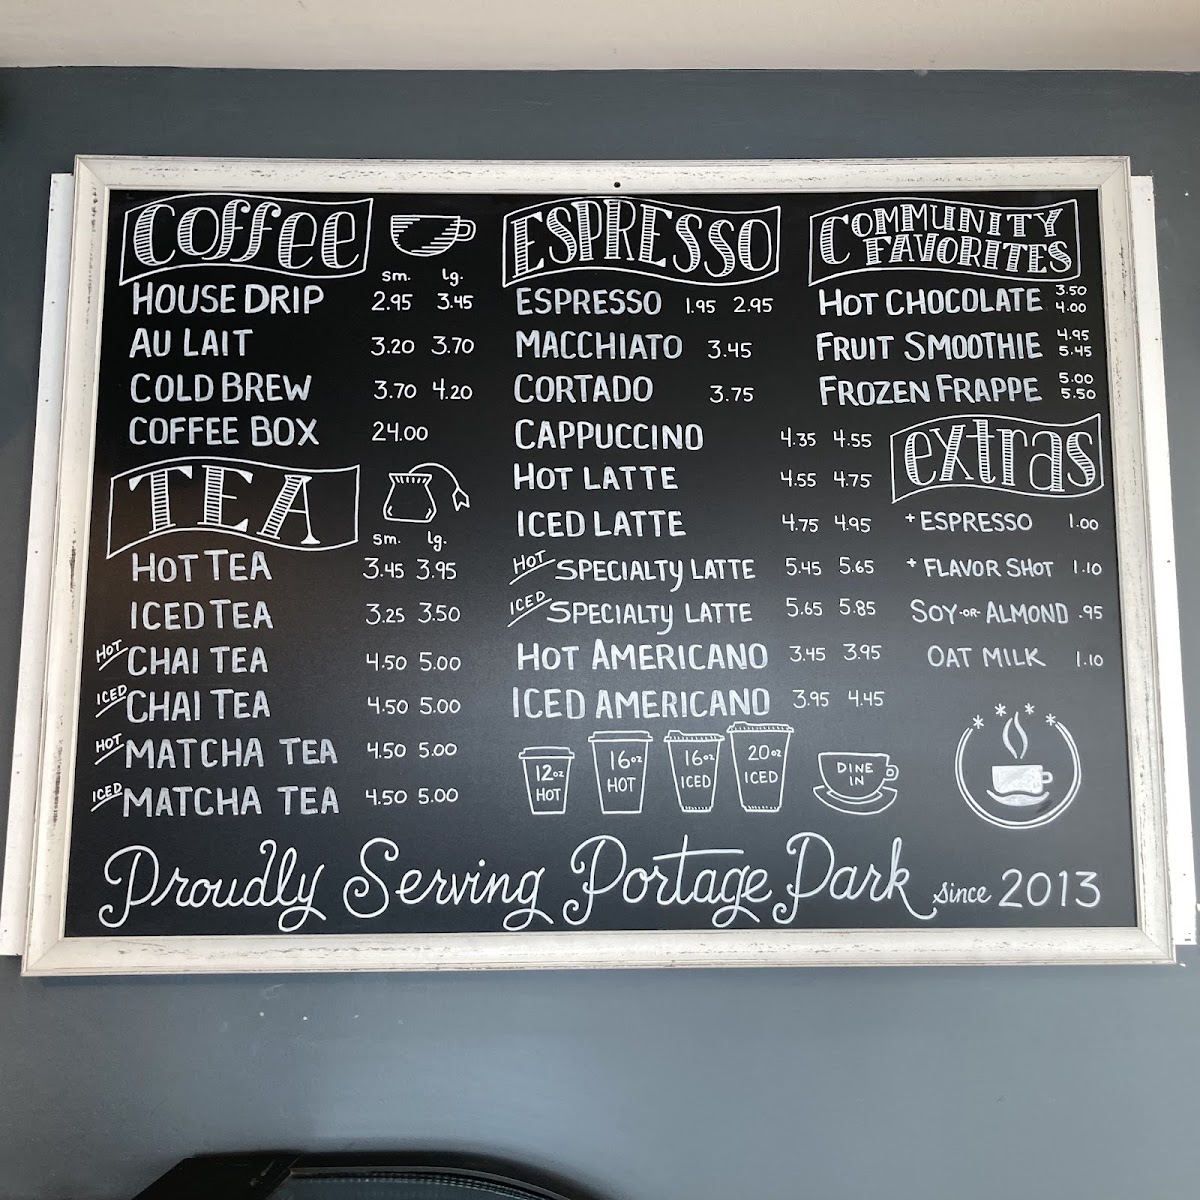 Coffee
sm. lg.
HOUSE DRIP 2.95 3.45
AU LAIT 3.20 3.70
COLD BREW 3.70 4.20
COFFEE BOX 24.00
TEA
sm. lg.
HOT TEA 3.45 3.95
ICED TEA 3.25 3.50
HOT CHAI TEA 4.50 5.00
ICED CHAI TEA 4.50 5.00
HOT MATCHA TEA 4.50 5.00
ICED MATCHA TEA 4.50 5.00
ESPRESSO
ESPRESSO 1.95 2.95
MACCHIATO 3.45
CORTADO 3.75
CAPPUCCINO 4.35 4.55
HOT LATTE 4.55 4.75
ICED LATTE 4.75 4.95
HOT SPECIALTY LATTE 5.45 5.65
ICED SPECIALTY LATTE 5.65 5.85
HOT AMERICANO 3.45 3.95
ICED AMERICANO 3.95 4.45
12oz HOT
16oz HOT
16oz ICED
20oz ICED
DINE IN
COMMUNITY
FAVORITES
HOT CHOCOLATE 3.50 4.00
FRUIT SMOOTHIE 4.95 5.45
FROZEN FRAPPE 5.00 5.50
extras
+ ESPRESSO 1.00
+ FLAVOR SHOT 1.10
SOY -OR- ALMOND .95
OAT MILK 1.10
Proudly Serving Portage Park since 2013